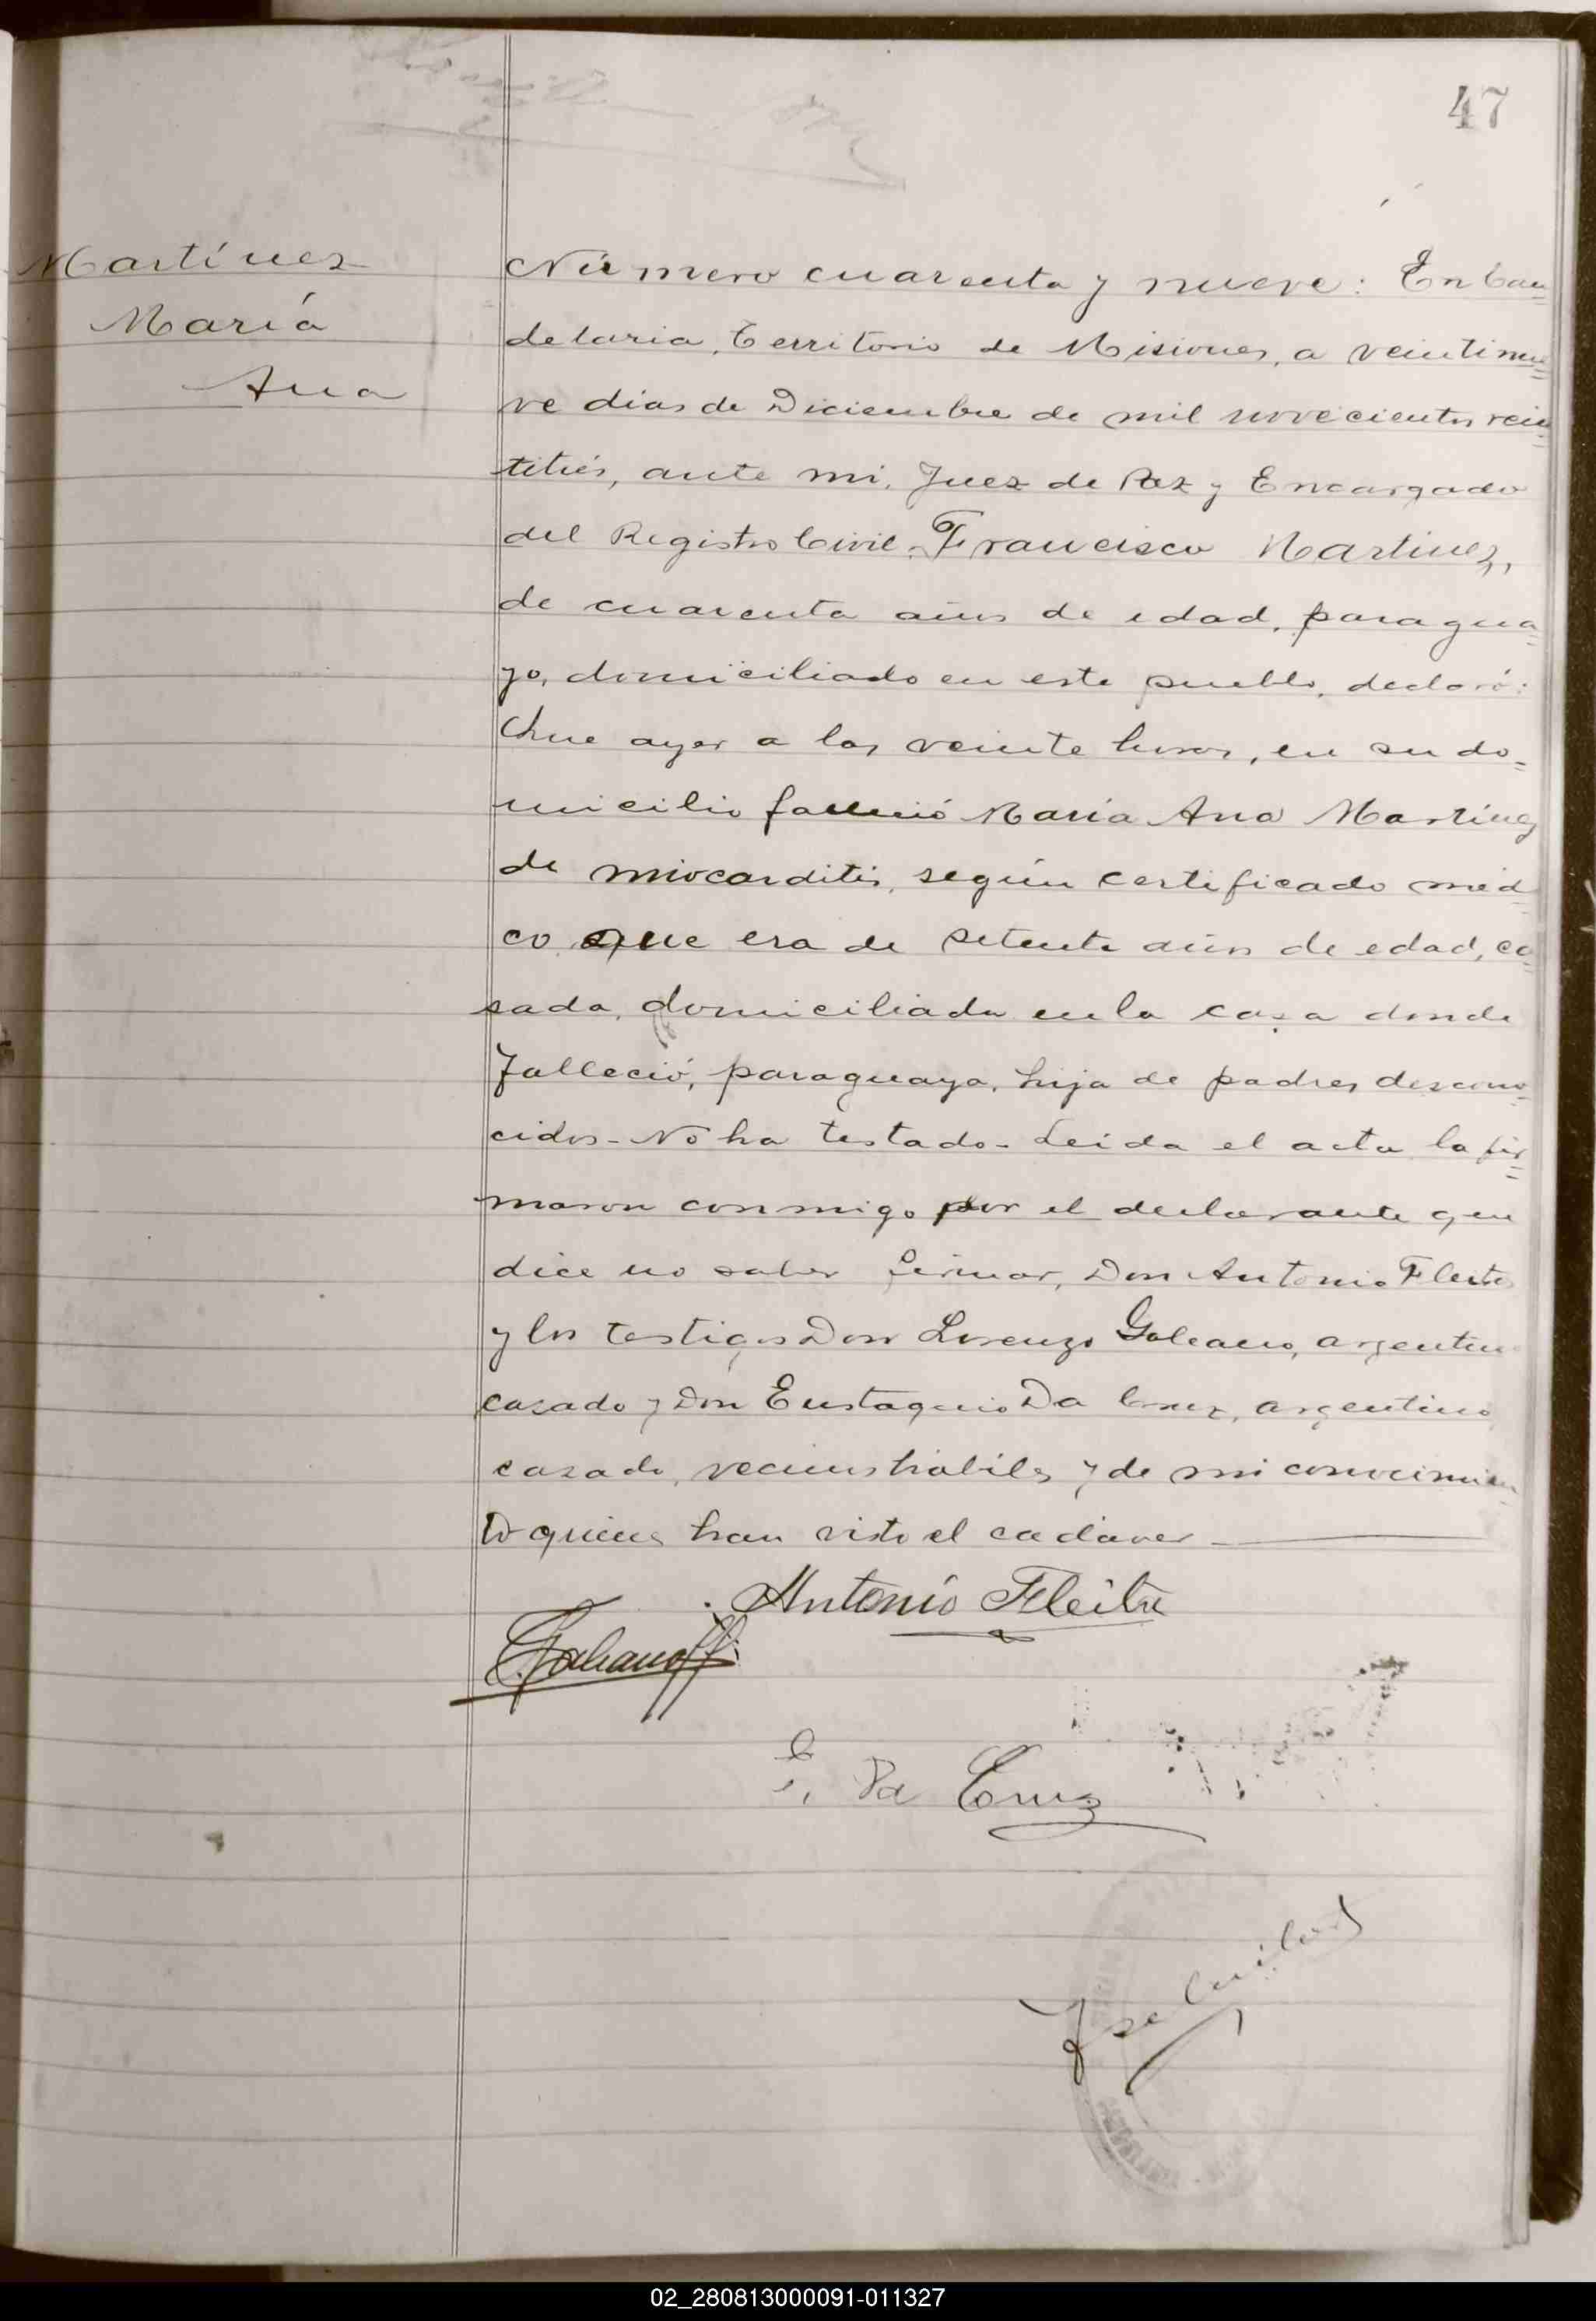 47
Martínez
María
Ana
Número cuarenta y nueve: En Can=
delaria, Territorio de Misiones, a veintinue=
ve días de Diciembre de mil novecientos vein=
titrés, ante mí, Juez de Paz y Encargado
del Registro Civil, Francisco Martínez,
de cuarenta años de edad, paragua=
yo, domiciliado en este pueblo, declaró:
Que ayer a las veinte horas, en su do=
micilio falleció María Ana Martínez
de miocarditis, según certificado médi=
co. Que era de setenta años de edad, ca=
sada, domiciliada en la casa donde
falleció, paraguaya, hija de padres descono=
cidos - No ha testado - Leída el acta la fir=
maron conmigo por el declarante que
dice no saber firmar, Don Antonio Fleita
y los testigos Don Lorenzo Galeano, argentino
casado y Don Eustaquio Da Cruz, argentino
casado, vecinos hábiles y de mi conocimien=
to quienes han visto el cadáver
Antonio Fleita
E. Da Cruz
02_280813000091-011327